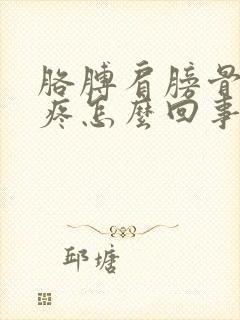 胳膊肩膀骨
疼怎麼回事
邱塘